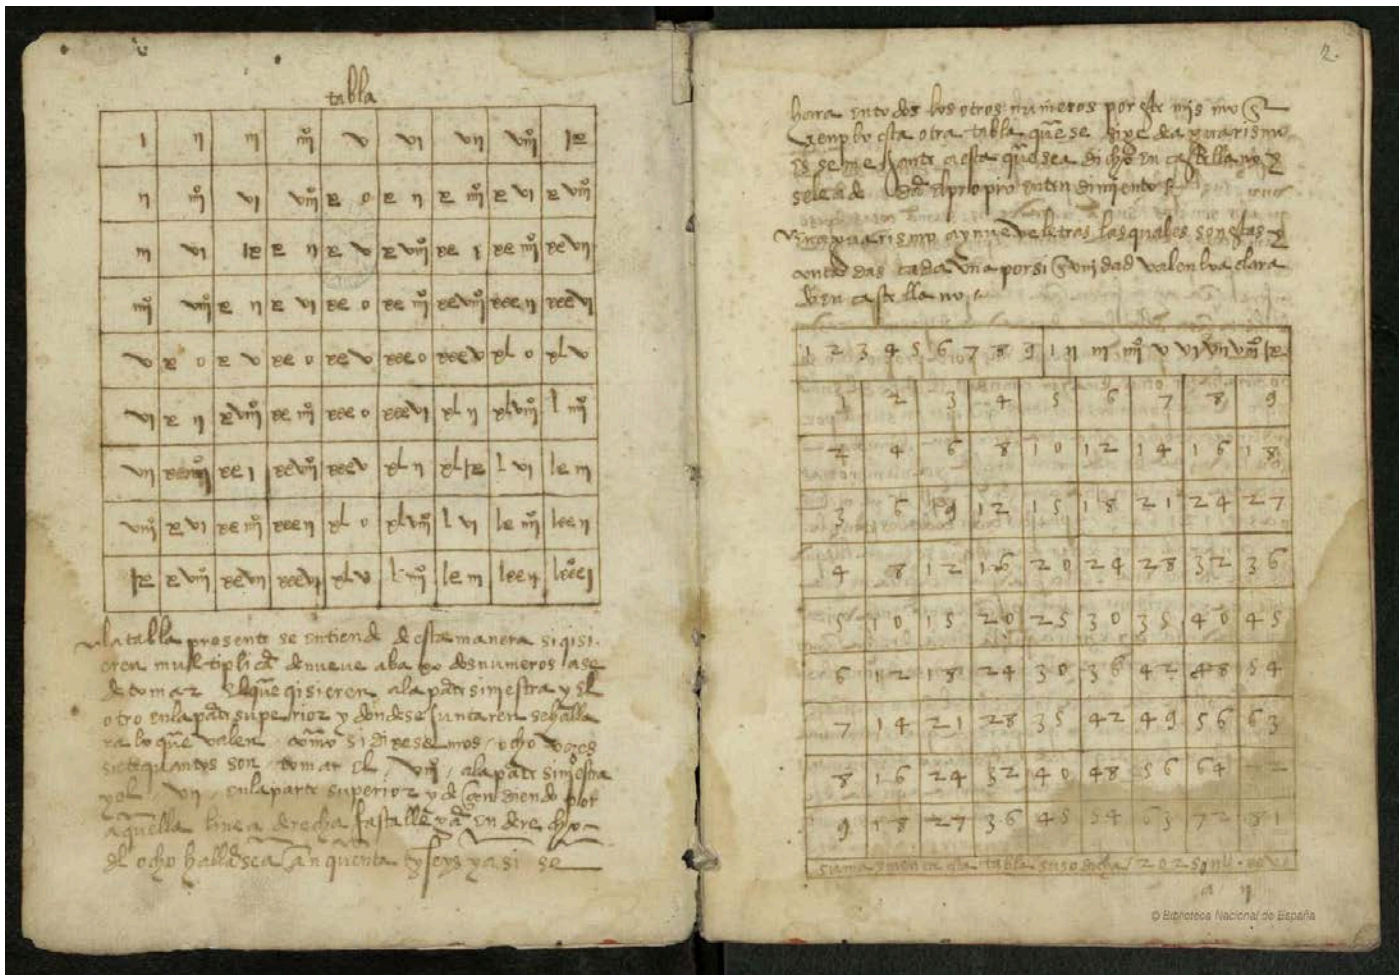 tabla
ı ıı ııı ıııº v vı vıı vıııº ıx
ıı ıııº vı vıııº x o x ıı x ıııº x vı x vıııº
ııı vı ıx x ıı x v x vıııº xx ı xx ıııº xx vıı
ıııº vıııº x ıı x vı xx o xx ıııº xx vıııº xxx ıı xxx vı
v x o x v xx o xx v xxx o xxx v xl o xl v
vı x ıı x vıııº xx ıııº xxx o xxx vı xl ıı xl vıııº l ıııº
vıı xx ı xx vıııº xxx v xl ıı xl ıx l vı lx ııı
vıııº x vı xx ıııº xxx ıı xl o xl vıııº l vı lx ıııº lxx ıı
ıx x vıııº xx vıı xxx vı xl v l ıııº lx ııı lxx ıı lxxx ı
la tabla presente se entiende de esta manera si qisi
eren multiplicar de nueve abaxo dos numeros a se
de tomar el que qisieren a la parte siniestra y el
otro en la parte superior y donde se juntaren se halla
ra lo que valen como si dixesemos ocho vezes
siete quantos son tomar el vıııº a la parte siniestra
y el vıı en la parte superior y decendiendo por
aquella linea derecha fasta llegar en derecho
del ocho hallarsea cinquenta y seys y asi se
2.
hara en todos los otros numeros por este mismo
exenplo esta otra tabla que se dize de a guarismo
es semejante a esta que sea dicho en castellano
se lea de al propio entendimiento
en aguarismo ay nueve letras las quales son estas
contadas cada una por si unidad valen lo a clara
do en castellano
1 2 3 4 5 6 7 8 9 ı ıı ııı ıııº v vı vıı vıııº ıx
1 2 3 4 5 6 7 8 9
2 4 6 8 10 12 14 16 18
3 6 9 12 15 18 21 24 27
4 8 12 16 20 24 28 32 36
5 10 15 20 25 30 35 40 45
6 12 18 24 30 36 42 48 54
7 14 21 28 35 42 49 56 63
8 16 24 32 40 48 56 64 72
9 18 27 36 45 54 63 72 81
suma tabla suso dicha 2025
a ıı
© Biblioteca Nacional de España